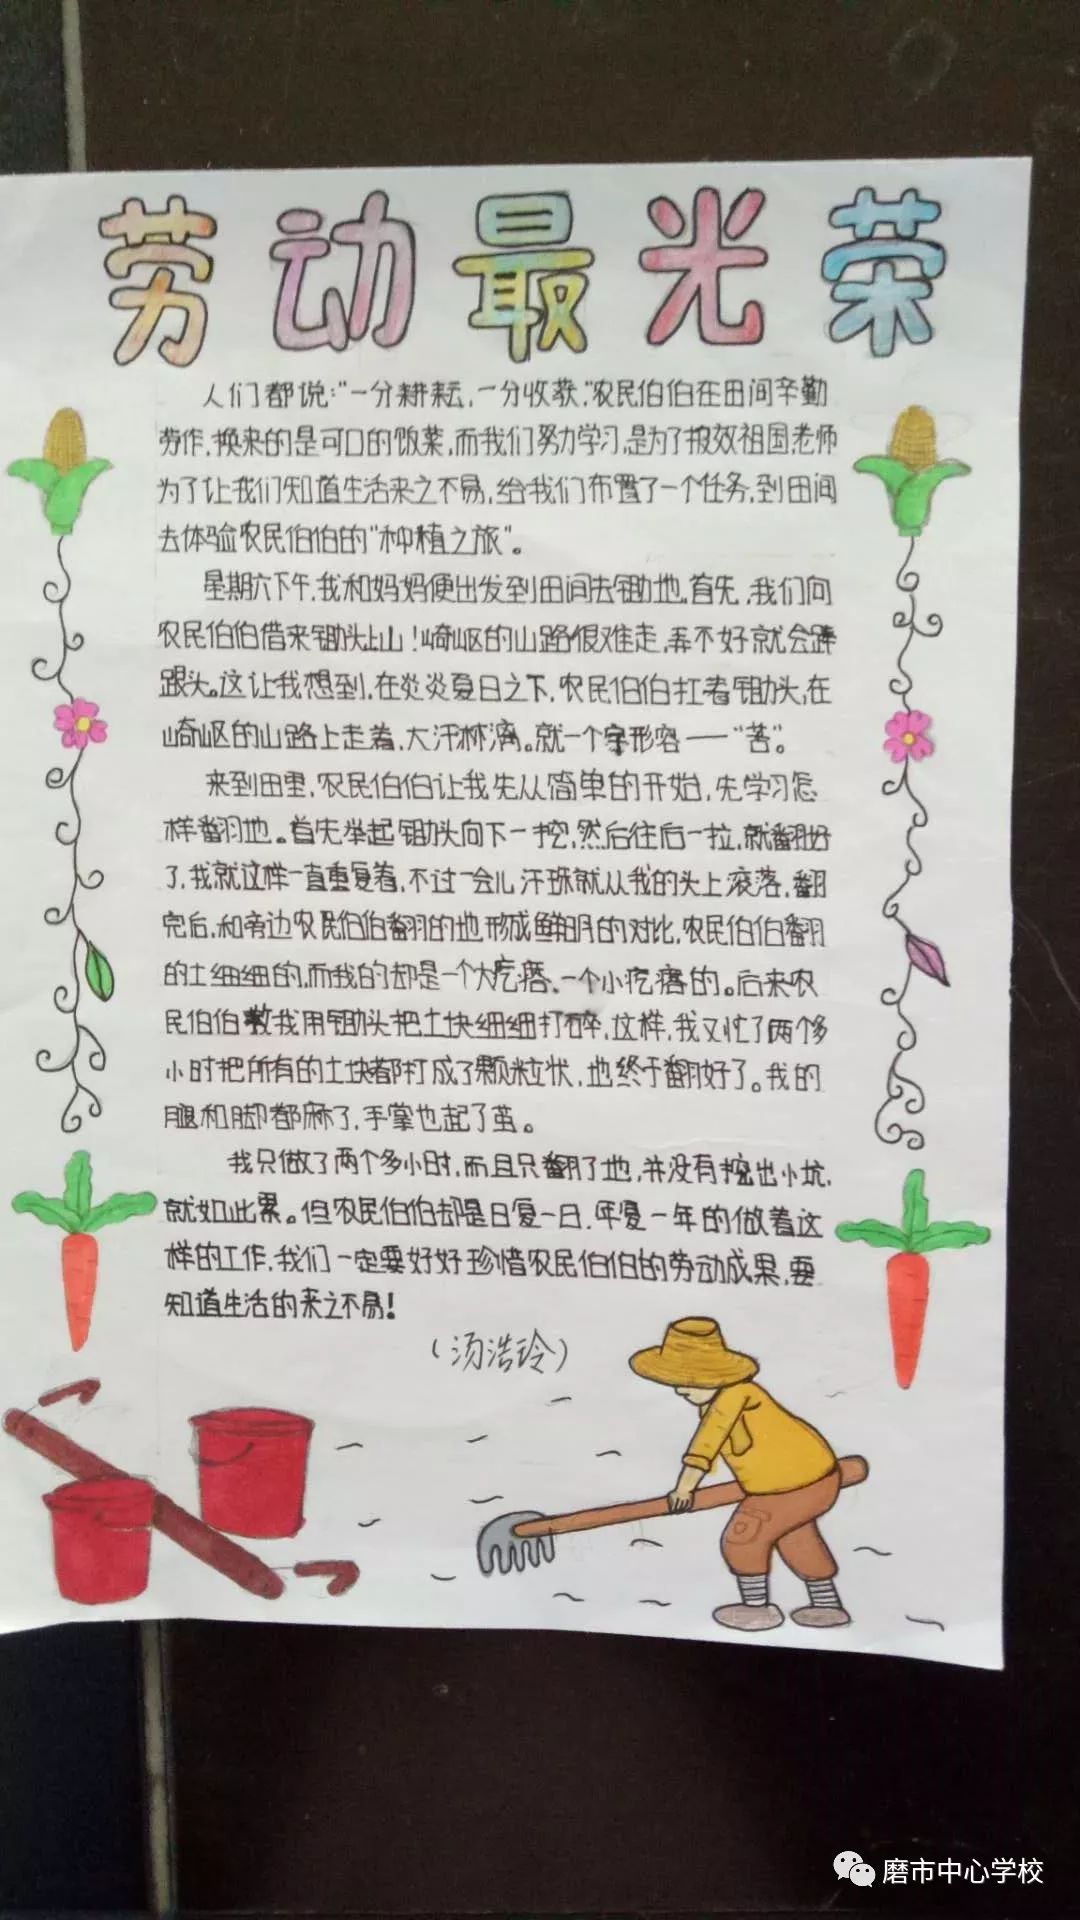 劳动最光荣
人们都说:"一分耕耘,一分收获,"农民伯伯在田间辛勤
劳作,换来的是可口的饭菜,而我们努力学习,是为了报效祖国,老师
为了让我们知道生活来之不易,给我们布置了一个任务,到田间
去体验农民伯伯的"种植之旅"。
星期六下午,我和妈妈便出发到田间去锄地,首先,我们向
农民伯伯借来锄头上山!崎岖的山路很难走,弄不好就会摔
跟头。这让我想到,在炎炎夏日之下,农民伯伯扛着锄头,在
崎岖的山路上走着,大汗淋漓。就一个字形容——"苦"。
来到田里,农民伯伯让我先从简单的开始,先学习怎
样翻地。首先举起锄头向下一挖,然后往后一拉,就翻好
了,我就这样一直重复着,不过一会儿汗珠就从我的头上滚落,翻
完后,和旁边农民伯伯翻的地形成鲜明的对比,农民伯伯翻
的土细细的,而我的却是一个大疙瘩、一个小疙瘩的。后来农
民伯伯教我用锄头把土块细细打碎,这样,我又忙了两个多
小时把所有的土块都打成了颗粒状,地终于翻好了。我的
腿和脚都麻了,手掌也起了茧。
我只做了两个多小时,而且只翻了地,并没有挖出小坑,
就如此累。但农民伯伯却是日复一日,年复一年的做着这
样的工作,我们一定要好好珍惜农民伯伯的劳动成果,要
知道生活的来之不易!
(汤浩玲)
磨市中心学校